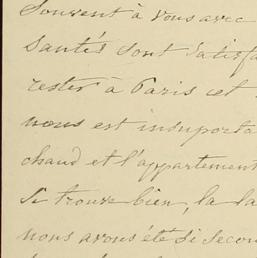 Souvent à vous avec
santés sont satisfa
rester à Paris cet
nous est insuporta
chaud et l'appartement
se trouve bien, la
nous avons été si secou